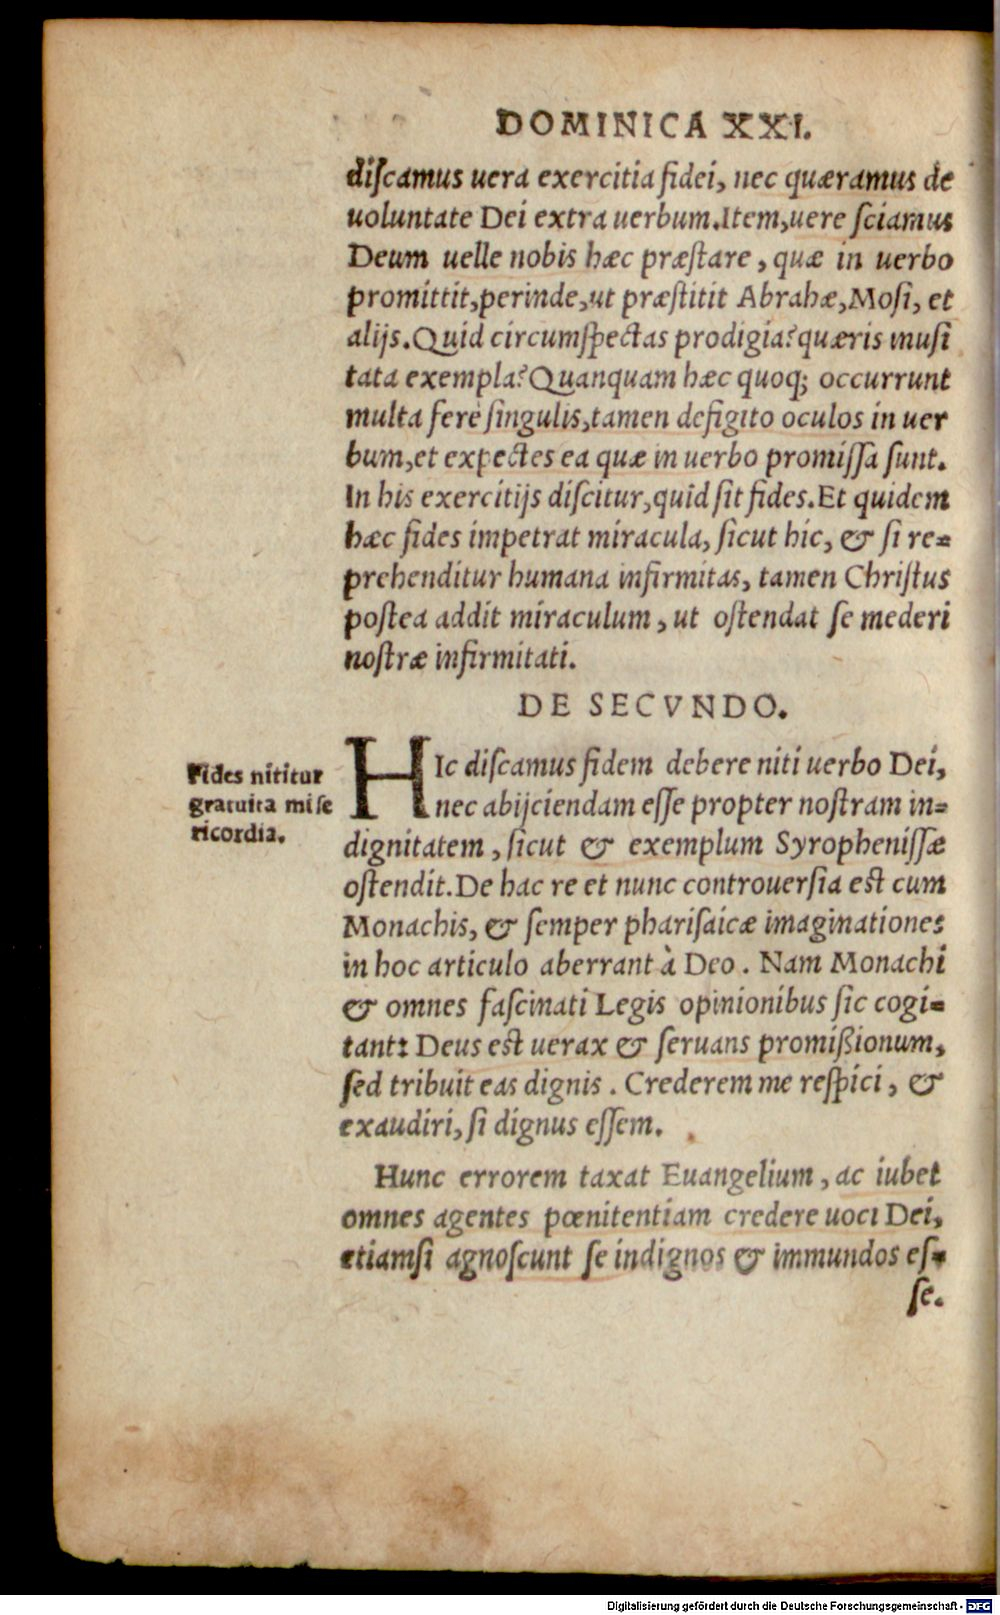 DOMINICA XXI.
diſcamus uera exercitia fidei, nec quæramus de
uoluntate Dei extra uerbum. Item, uere ſciamus
Deum uelle nobis hæc præſtare, quæ in uerbo
promittit, perinde, ut præſtitit Abrahæ, Moſi, et
alijs. Quid circumſpectas prodigia? quæris inuſi
tata exempla? Quanquam hæc quoq; occurrunt
multa ferè ſingulis, tamen defigito oculos in uer
bum, et expectes ea quæ in uerbo promiſſa ſunt.
In his exercitijs diſcitur, quid ſit fides. Et quidem
hæc fides impetrat miracula, ſicut hic, & ſi re=
prehenditur humana infirmitas, tamen Chriſtus
poſtea addit miraculum, ut oſtendat ſe mederi
noſtræ infirmitati.
DE SECVNDO.
Fides nititur
gratuita miſe
ricordia.
HIc diſcamus fidem debere niti uerbo Dei,
nec abijciendam eſſe propter noſtram in=
dignitatem, ſicut & exemplum Syropheniſſæ
oſtendit. De hac re et nunc controuerſia est cum
Monachis, & ſemper phariſaicæ imaginationes
in hoc articulo aberrant à Deo. Nam Monachi
& omnes faſcinati Legis opinionibus ſic cogi=
tant: Deus est uerax & ſeruans promißionum,
ſed tribuit eas dignis. Crederem me reſpici, &
exaudiri, ſi dignus eſſem.
Hunc errorem taxat Euangelium, ac iubet
omnes agentes pœnitentiam credere uoci Dei,
etiamſi agnoſcunt ſe indignos & immundos eſ=
ſe.
Digitalisierung gefördert durch die Deutsche Forschungsgemeinschaft - DFG